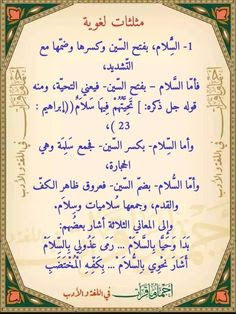 مثلثات لغوية
1- السَِّلام، بفتح السّين وكسرها وضمّها مع
التّشديد،
فأمّا السَّلام – بفتح السّين- فيعني التحيّة، ومنه
قوله جل ذكره: ] تَحِيَّتُهُمْ فِيهَا سَلَامٌ((إبراهيم :
23 )،
وأما السِّلام- بكسر السّين- فجمع سَلِمَة وهي
الحجارة،
وأمّا السُّلام- بضمّ السّين- فعروق ظاهر الكفّ
والقدم، وجمعها سُلاميات وسِلَام.
وإلى المعاني الثلاثة أشار بعضُهم:
بَدَا وَحَيَّا بِالسَّلَامْ ... رَمَى عَذُولِي بِالسِّلَامْ
أَشَارَ نَحْوِي بِالسُّلَامْ .. بِكَفِّهِ الْمُخْتَضَبِ
في اللغة والأدب